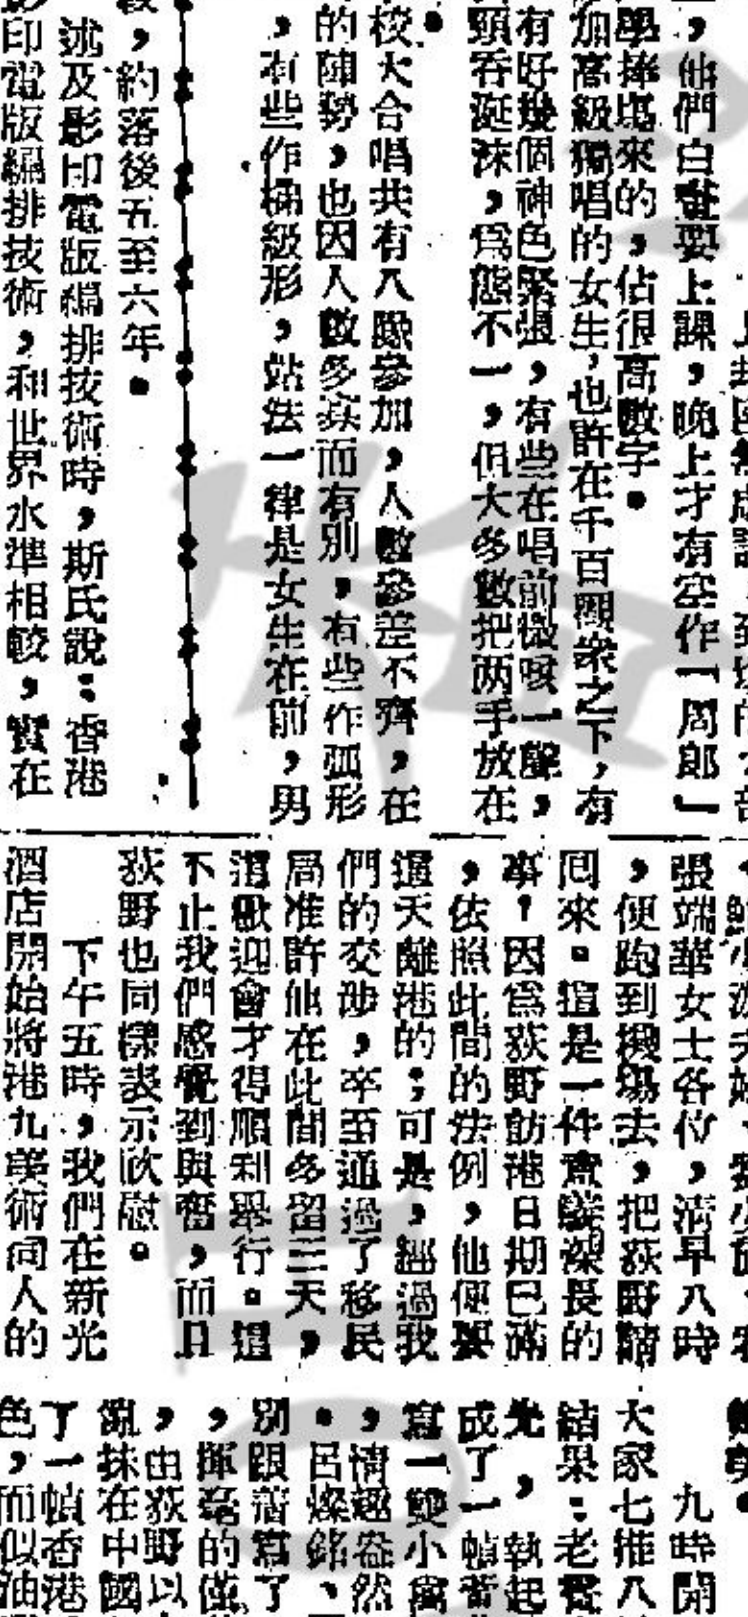 ，他們白晝要上課，晚上才有空作「周郎」
學捧塲來的，佔很高數字。
加高級獨唱的女生，也許在千百觀衆之下，有
有好幾個神色緊張，有些在唱前微咳一聲，
頸吞涎沫，爲態不一，但大多數把两手放在
校大合唱共有八隊參加，人數參差不齊，在
的陣勢，也因人數多寡而有別，有些作弧形
，有些作梯級形，站法一律是女生在前，男
，約落後五至六年。
述及影印電版編排技術時，斯氏說：香港
影印電版編排技術，和世界水準相較，實在
張端華女士各位，清早八時
，便跑到機場去，把荻野請
回來。這是一件的
事，因爲荻野訪港日期已滿
，依照此間的法例，他便要
這天離港的；可是，經過我
們的交涉，卒至通過了移民
局准許他在此間多留三天，
這歡迎會才得順利舉行。這
不止我們感覺到興奮，而且
荻野也同樣表示欣慰。
下午五時，我們在新光
酒店開始將港九美術同人的
九時開
大家七推八
結果：老
光，執起
成了一幀
寫一雙小
，情趣盎然
。呂燦銘、
別跟着寫了
，揮毫的僅
，由荻野以
亂抹在中國
了一幀香港
色，而似油